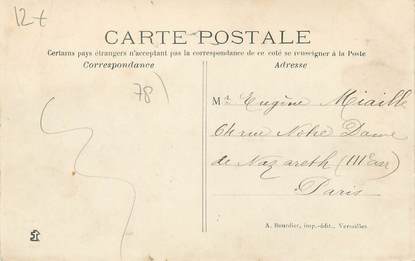 12t
CARTE POSTALE
Certains pays étrangers n'acceptant pas la correspondance de ce coté se renseigner à la Poste
Correspondance
Adresse
78)
Mr. Eugène Miaille
64 rue Nôtre Dame
de Nazareth (III Earr)
Paris
A. Bourdier, imp.-édit., Versailles